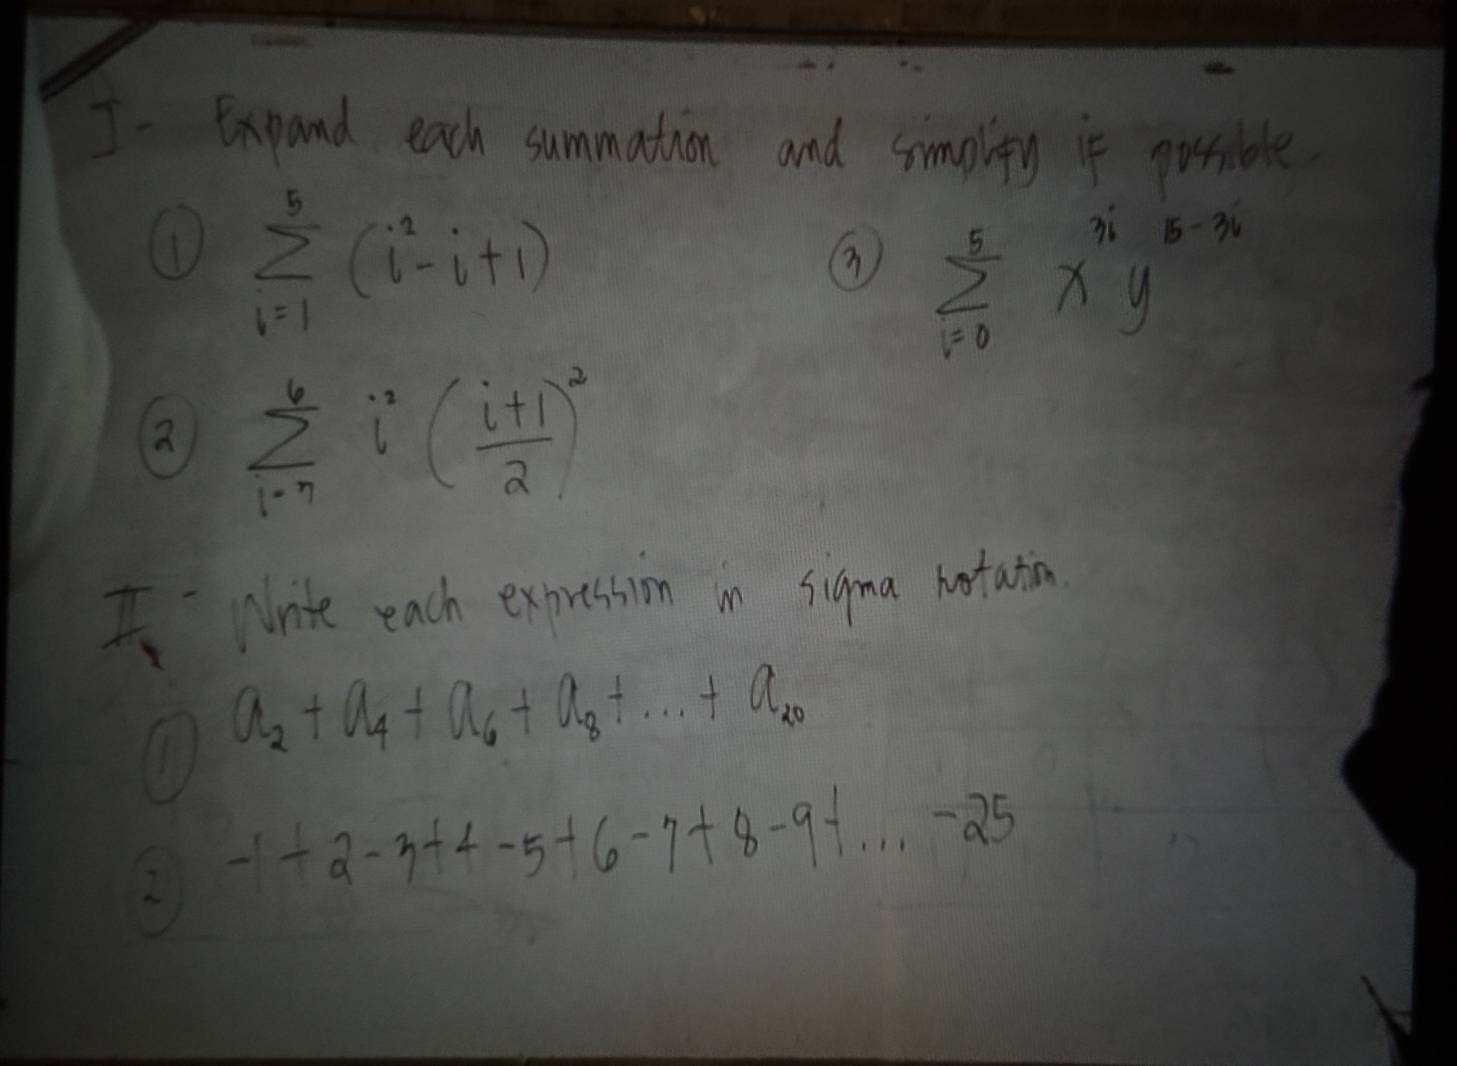 I- Expand each summation and simplify if possible.
① 5 ∑ i=1 (i² - i + 1)
③ 5 ∑ i=0 x^3i y^15-3i
② 6 ∑ i² ((i+1)/2)²
II- Write each expression in sigma notation.
① a₂ + a₄ + a₆ + a₈ + ... + a₂₀
② -1 + 2 - 3 + 4 - 5 + 6 - 7 + 8 - 9 + ... - 25